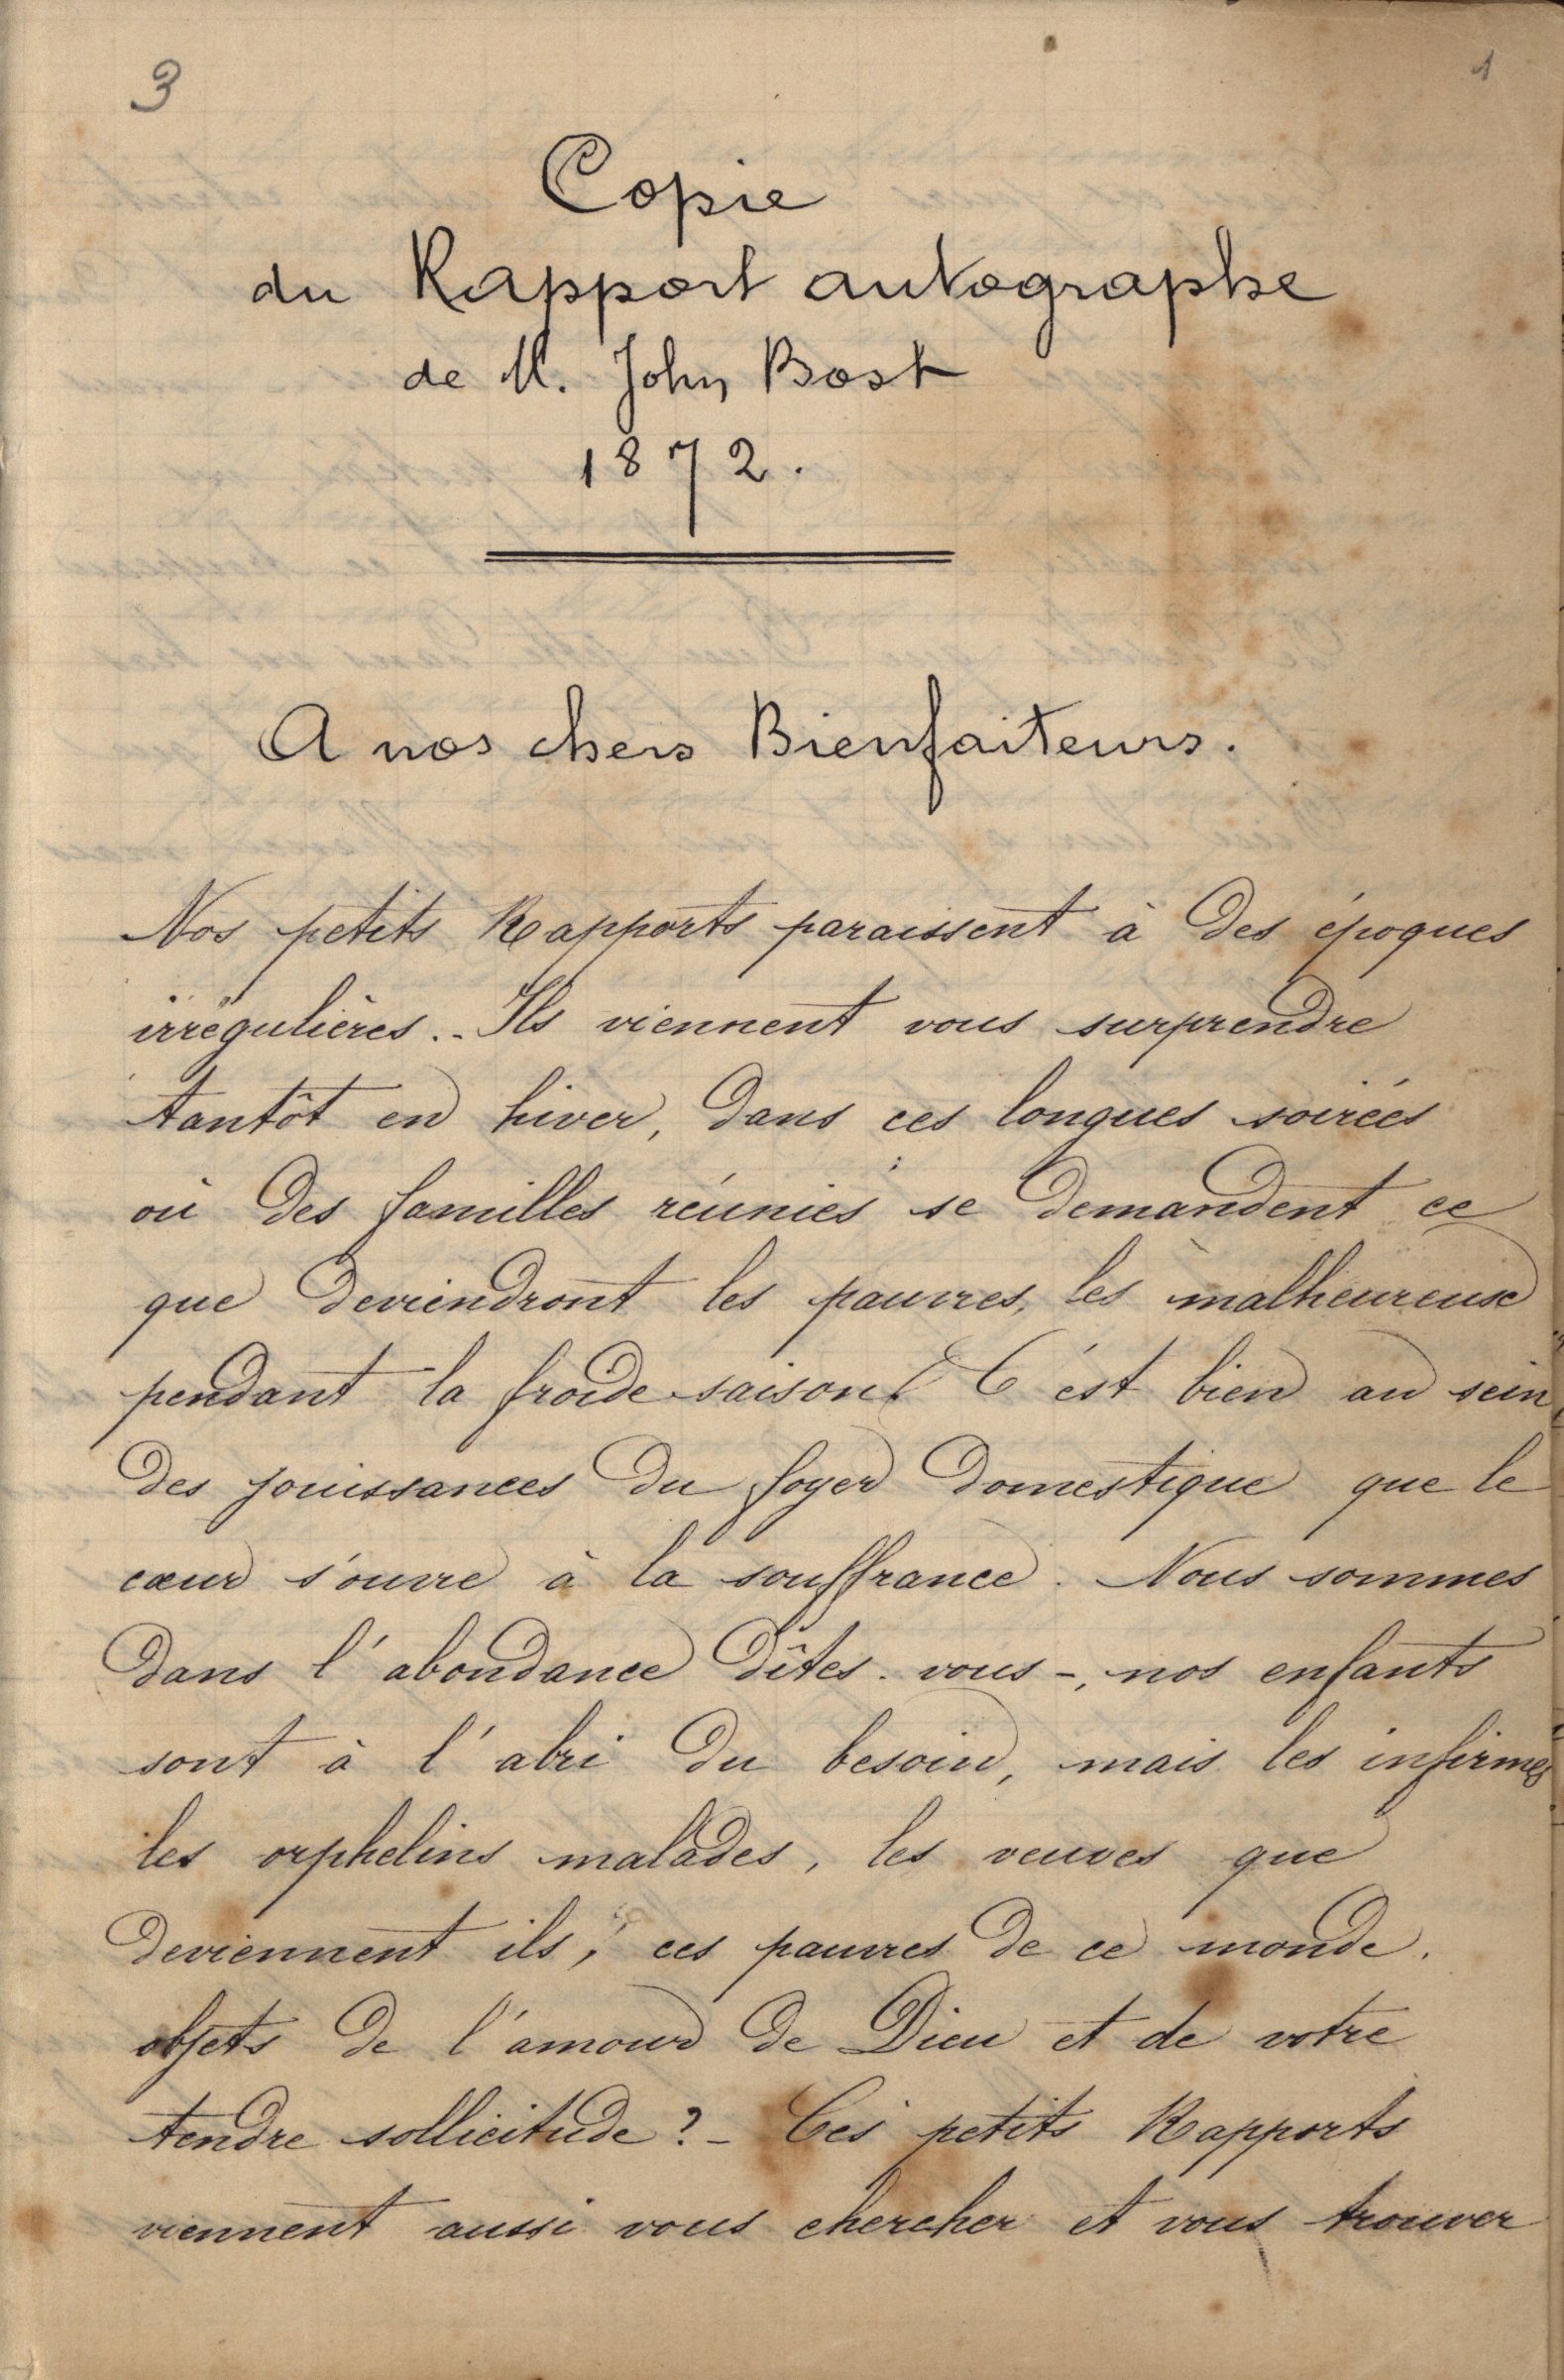 3
1
Copie
du Rapport autographe
de M. John Bost
1872.
A nos chers Bienfaiteurs.
Nos petits Rapports paraissent à des époques
irrégulières.- Ils viennent vous surprendre
tantôt en hiver, dans ces longues soirées
où des familles réunies se demandent ce
que deviendront les pauvres, les malheureux
pendant la froide saison! C'est bien au sein
des jouissances du foyer domestique que le
cœur s'ouvre à la souffrance. Nous sommes
dans l'abondance dîtes-vous-, nos enfants
sont à l'abri du besoin, mais les infirmes
les orphelins malades, les veuves que
deviennent ils, ces pauvres de ce monde,
objets de l'amour de Dieu et de votre
tendre sollicitude? - Ces petits Rapports
viennent aussi vous chercher et vous trouver